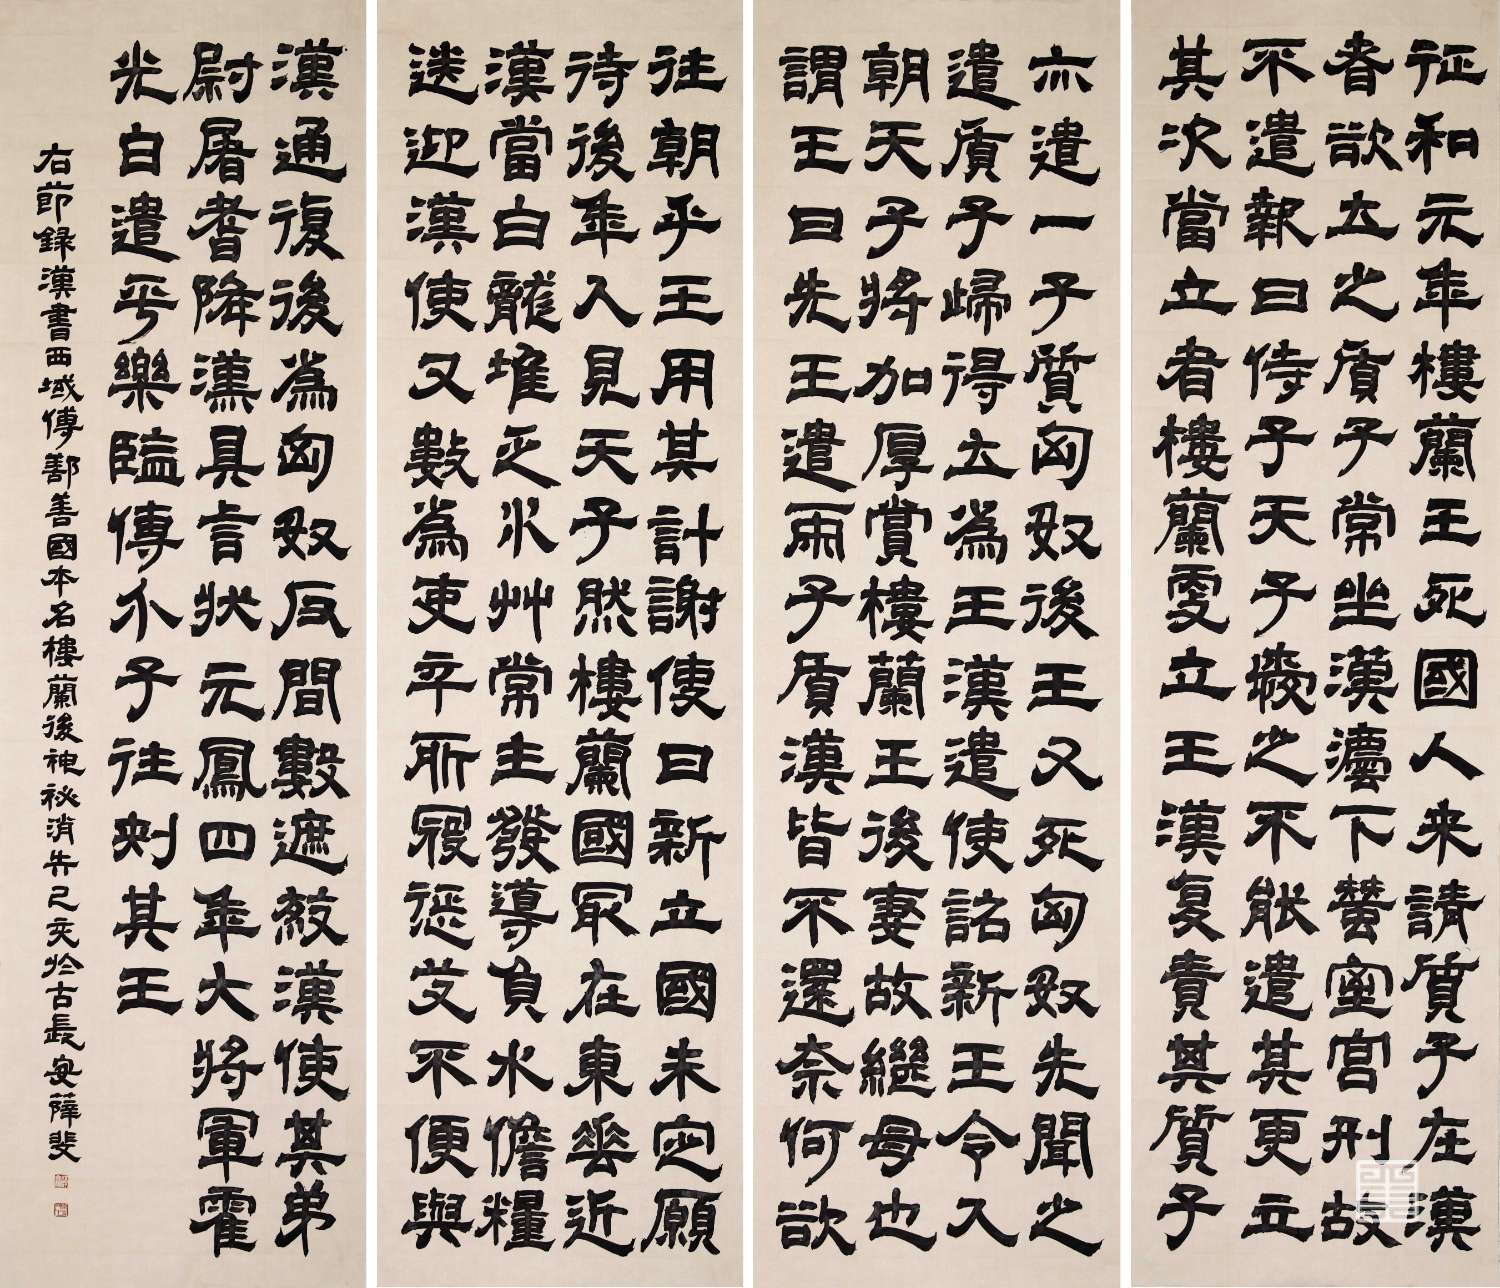 征和元年樓蘭王死國人来請質子在漢
者欲立之质子常坐漢灋下蠶室宮刑故
不遣報曰侍子天子愛之不能遣其更立
其次當立者樓蘭更立王漢复責其質子
亦遣一子質匈奴後王又死匈奴先聞之
遣质子歸得立為王漢遣使詔新王令入
朝天子将加厚賞樓蘭王後妻故繼母也
謂王曰先王遣兩子质漢皆不還奈何欲
往朝乎王用其計謝使曰新立國未定願
待後年入見天子然樓蘭國最在東垂近
漢當白龍堆乏水艸常主發導負水儋糧
送迎漢使又數為吏卒所寇懲艾不便與
漢通復後為匈奴反間數遮殺漢使其弟
尉屠耆降漢具言狀元鳳四年大将軍霍
光白遣平樂監傅介子往刺其王
右節録漢書西域傳鄯善國本名樓蘭後神祕消失己亥於古長安薛斐